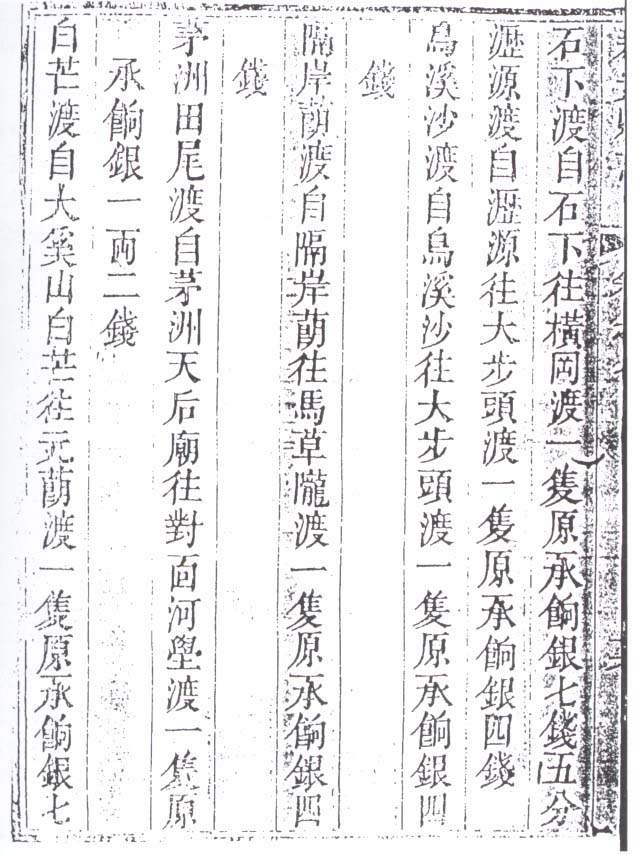 石下渡自石下往橫岡渡一隻原承餉銀七錢五分
瀝源渡自瀝源往大步頭渡一隻原承餉銀四錢
烏溪沙渡自烏溪沙往大步頭渡一隻原承餉銀四
錢
隔岸蓢渡自隔岸蓢往馬草隴渡一隻原承餉銀四
錢
茅洲田尾渡自茅洲天后廟往對靣河壆渡一隻原
承餉銀一両二錢
白芒渡自大奚山白芒往元蓢渡一隻原承餉銀七